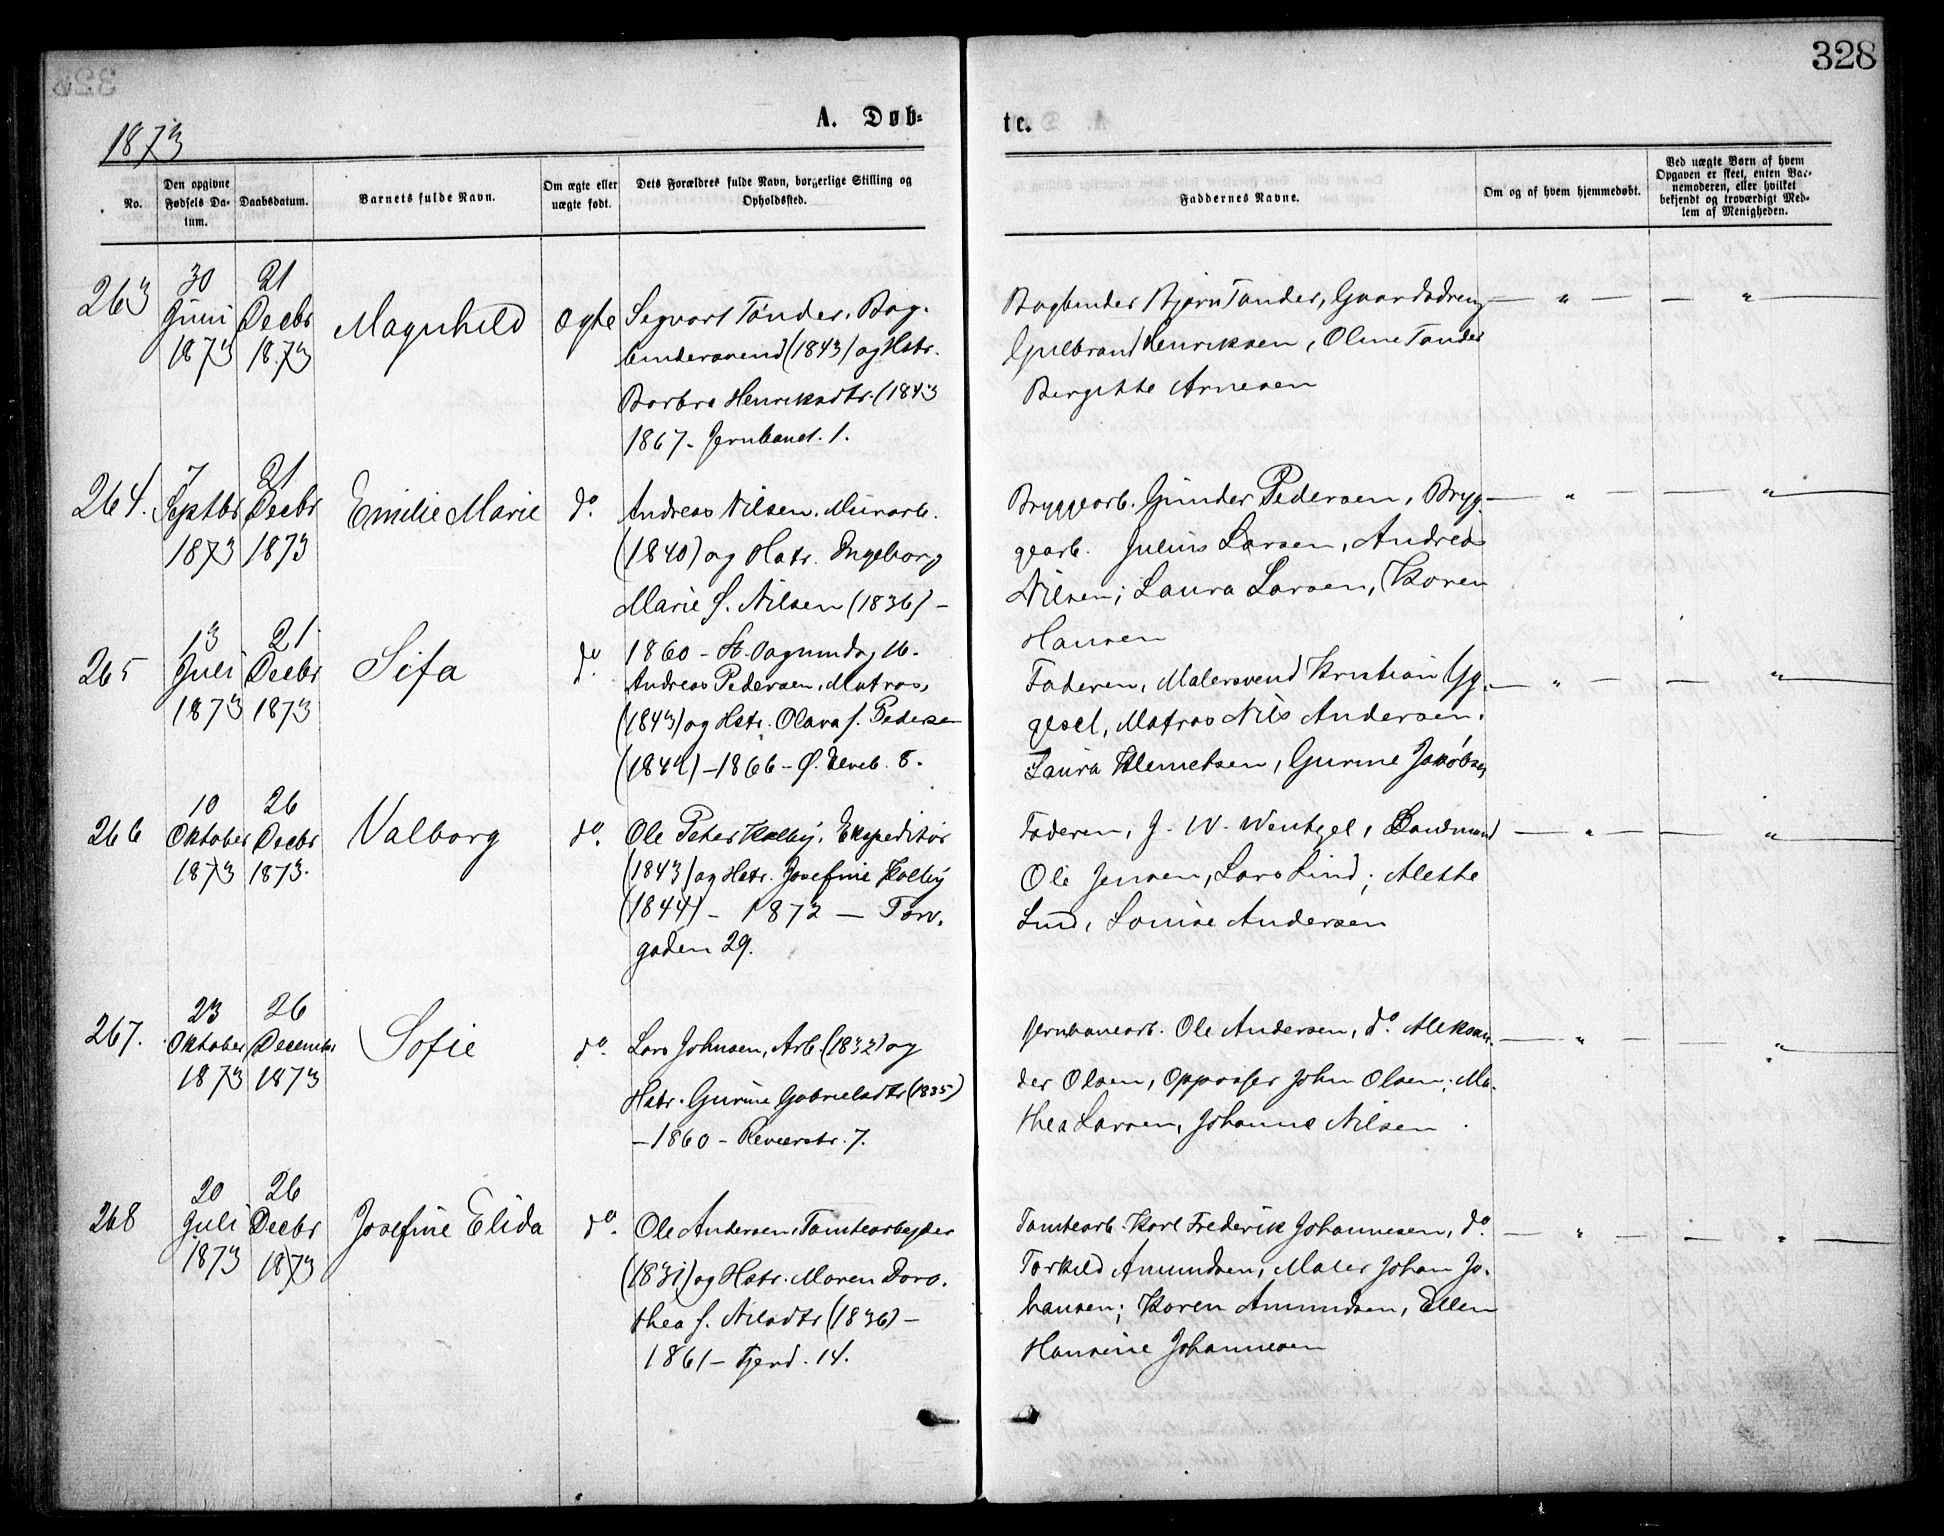 328
1873
A. Døb-
te.
No.
Den opgivne Fødsels Datum.
Daabsdatum.
Barnets fulde Navn.
Om ægte eller uægte født.
Dets Forældres fulde Navn, borgerlige Stilling og Opholdssted.
Faddernes Navne.
Om og af hvem hjemmedøbt.
Ved uægte Børn af hvem Opgaven er skeet, enten Barnemoderen, eller hvilket bekjendt og troværdigt Medlem af Menigheden.
263
30 Juni 1873
21 Decbr 1873
Magnhild
ægte
Segvart Tander, Bog-
bindersvend (1843) og Hstr.
Barbra Henriksdtr. (1843
1867 - Jernbanet. 1.
Bogbinder Bjørn Tander, Gaardsdreng
Gulbrand Henriksen, Oline Tander
Bergitte Arnesen
— " — — " —
264.
7 Septbr 1873
21 Decbr 1873
Emilie Marie
do.
Andreas Nilsen, Murarb.
(1840) og Hstr. Ingeborg
Marie f. Nilsen (1836) -
1860 - St. 16.
Bryggearb. Gunder Pedersen, Bryg-
gearb. Julius Larsen, Andreas
Nilsen; Laura Larsen, Karen
Hansen
— " — — " —
265
13 Juli 1873
21 Decbr 1873
Sifa
do.
Andreas Pedersen, Matros,
(1843) og Hstr. Olava f. Pedersen
(1844) - 1866 - Ø. Elveb. 8.
Faderen, Malersvend Kristian Yg-
gesel, Matros Nils Andersen,
Laura Klemetsen, Gurine Jakobsen
— " — — " —
266
10 Oktober 1873
26 Decbr 1873.
Valborg
do.
Ole Peter Kolby, Ekspeditør
(1843) og Hstr. Josefine Kolby
(1844) - 1872 - Torv-
gaden 29.
Faderen, J. W. Wentzel,
Ole Jensen, Lars Lind; Alette
Lind, Louise Andersen
— " — — " —
267.
23 Oktober 1873
26 December 1873
Sofie
do.
Lars Johnsen, Arb. (1832) og
Hstr. Gurine Gabrielsdtr (1835)
- 1860 - Reverstr. 7.
Jernbanearb. Ole Andersen, do. Aleksan-
der Olsen, Oppasser John Olsen; Ma-
thea Larsen, Johanne Nilsen
— " — — " —
268
20 Juli 1873
26 Decbr 1873
Josefine Elida
do.
Ole Andersen, Tomtearbejder
(1831) og Hstr. Maren Doro-
thea f. Nilsdtr (1836) -
1861 - Fjerd. 14.
Tomtearb. Karl Frederik Johannesen, do.
Torkild Amundsen, Maler Johan Jo-
hansen; Karen Amundsen, Ellen
Hansine Johannesen
— " — — " —